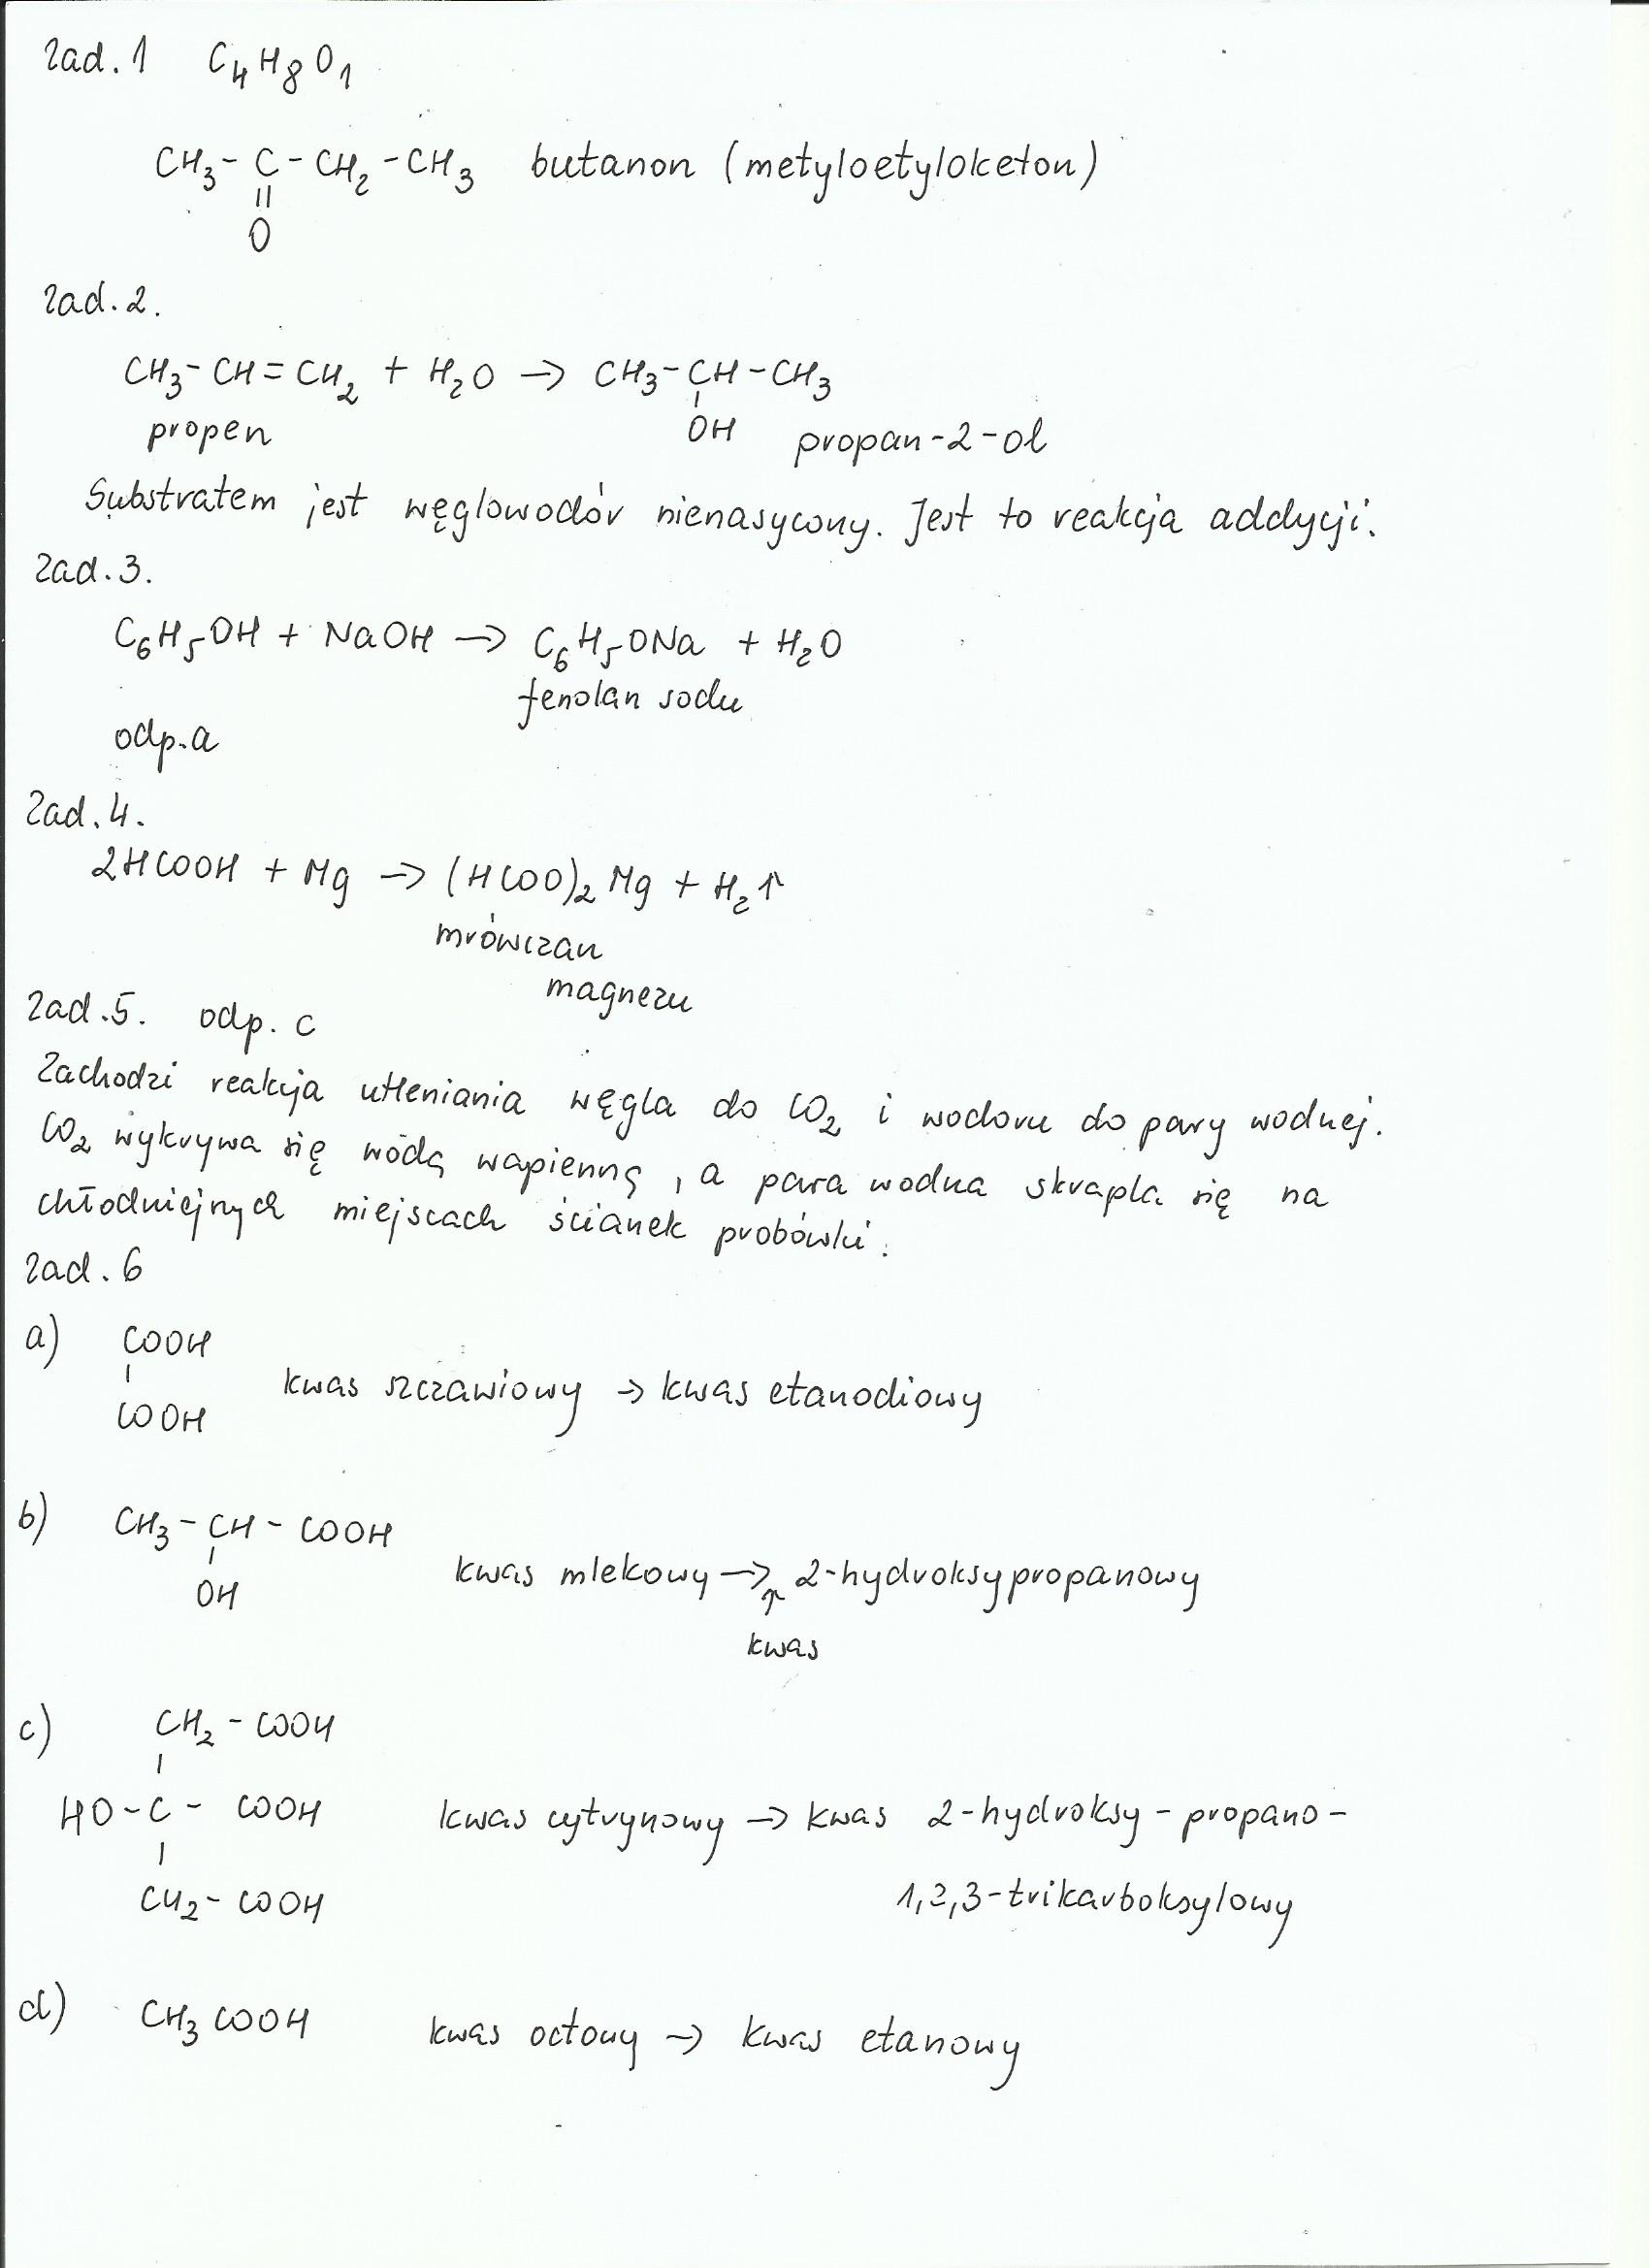 zad. 1 C₄H₈O₁
CH₃ - C - CH₂ - CH₃ butanon (metyloetyloketon)
||
O
zad. 2.
CH₃ - CH = CH₂ + H₂O → CH₃ - CH - CH₃
propen OH propan-2-ol
Substratem jest węglowodór nienasycony. Jest to reakcja addycji.
zad. 3.
C₆H₅OH + NaOH → C₆H₅ONa + H₂O
fenolan sodu
odp. a
zad. 4.
2HCOOH + Mg → (HCOO)₂Mg + H₂↑
mrówczan
magnezu
zad. 5. odp. c
Zachodzi reakcja utleniania węgla do CO₂ i wodoru do pary wodnej.
CO₂ wykrywa się wodą wapienną, a para wodna skrapla się na
chłodniejnych miejscach ścianek probówki.
zad. 6
a) COOH
|
COOH kwas szczawiowy → kwas etanodiowy
b) CH₃ - CH - COOH
|
OH kwas mlekowy → 2-hydroksypropanowy
↑
kwas
c) CH₂ - COOH
|
HO - C - COOH kwas cytrynowy → kwas 2-hydroksy-propano-
|
CH₂ - COOH 1,2,3-trikarboksylowy
d) CH₃COOH kwas octowy → kwas etanowy